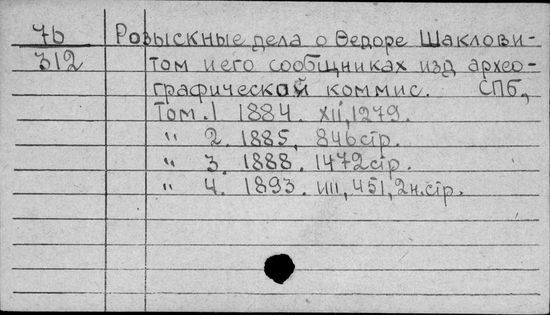 76 Розыскные дела о Федоре Шаклови-
312 том и его сообщниках изд архео-
графической коммис. СПб,
Том. 1 1884. XII, 1279.
" 2. 1885, 846 стр.
" 3. 1888. 1472 стр.
" 4. 1893. III, 451, 2 н. стр.